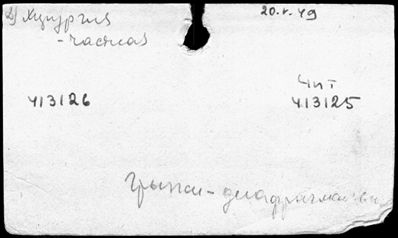 Хирургия 20.V.49
-частная
Чит
413126 413125
Грыжи - диафрагмальн